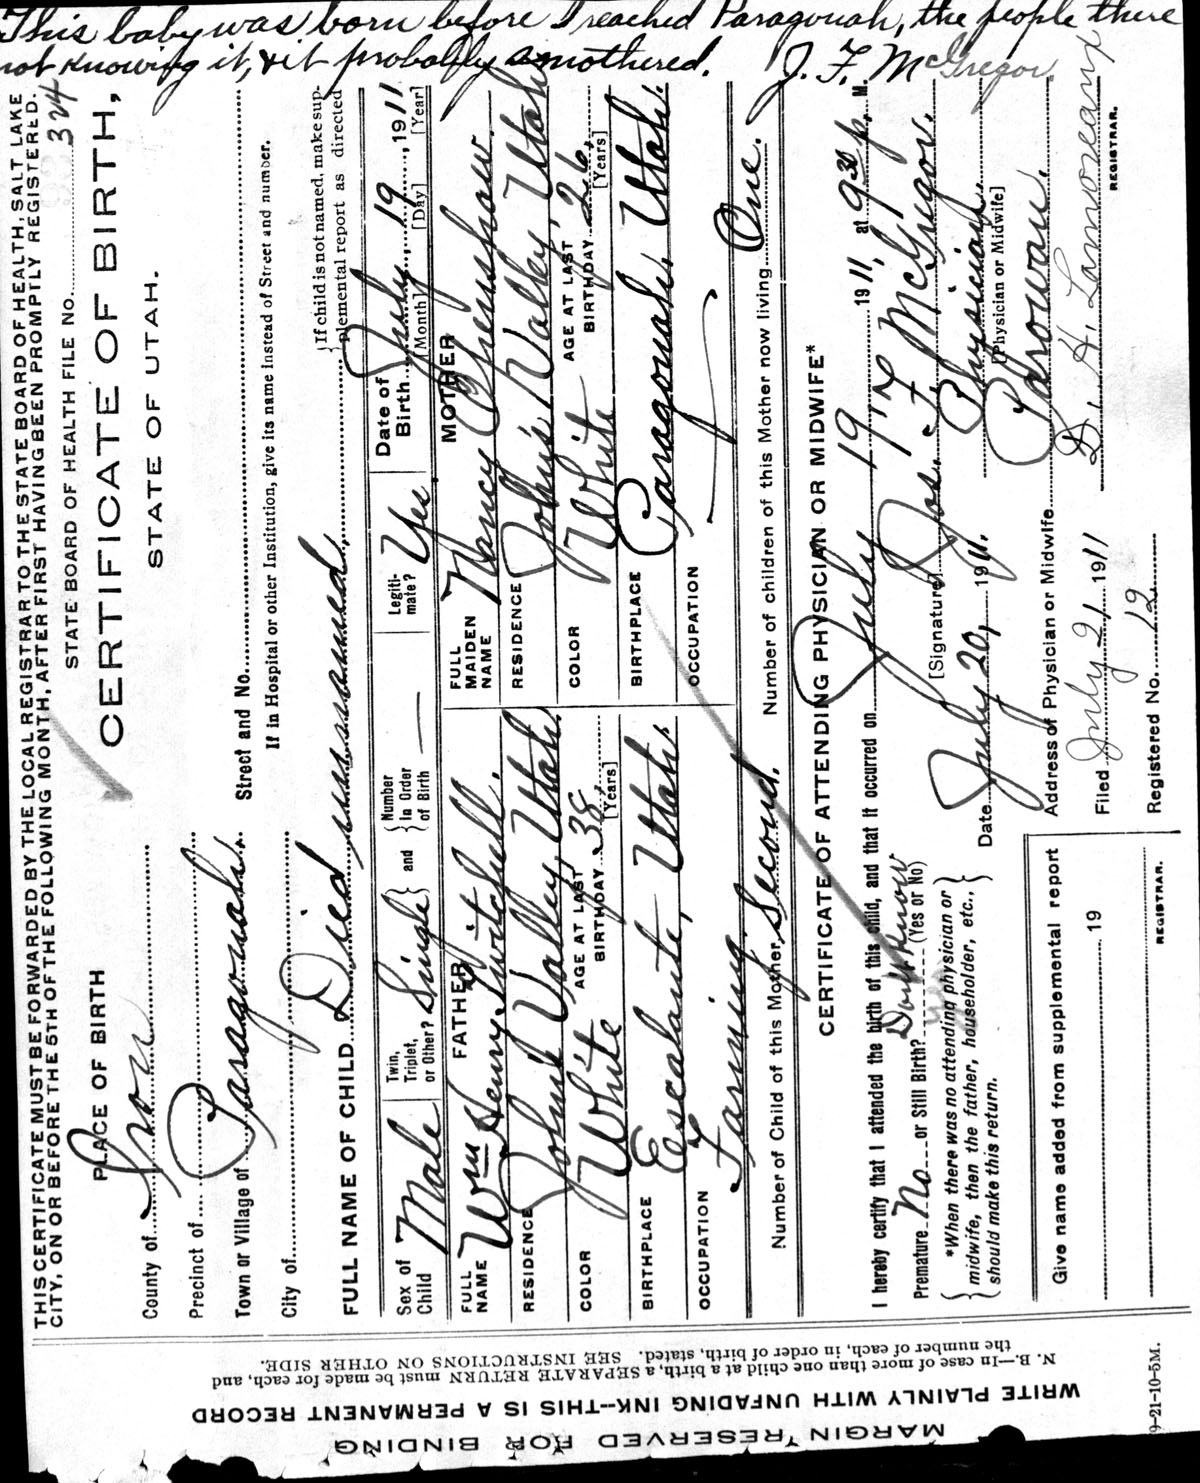 This baby was born before I reached Paragonah, the people there
not knowing it, & it probably smothered. J. F. McGregor.
THIS CERTIFICATE MUST BE FORWARDED BY THE LOCAL REGISTRAR TO THE STATE BOARD OF HEALTH, SALT LAKE
CITY, ON OR BEFORE THE 5TH OF THE FOLLOWING MONTH, AFTER FIRST HAVING BEEN PROMPTLY REGISTERED.
STATE BOARD OF HEALTH FILE No. 324
PLACE OF BIRTH
CERTIFICATE OF BIRTH,
STATE OF UTAH.
County of Iron
Precinct of Paragonah
Town or Village of Street and No.
If in Hospital or other Institution, give its name instead of Street and number.
City of
FULL NAME OF CHILD Died unnamed. {If child is not named, make supplemental report as directed
Sex of Child Male
Twin, Triplet, or Other? Single and Number in Order of Birth —
Legitimate? Yes
Date of Birth July 19, 1911
[Month] [Day] [Year]
FATHER
FULL NAME Wm Henry Twitchell.
RESIDENCE John's Valley, Utah
COLOR White AGE AT LAST BIRTHDAY 38 [Years]
BIRTHPLACE Escalante, Utah.
OCCUPATION Farming.
MOTHER
FULL MAIDEN NAME Nancy
RESIDENCE John's Valley, Utah
COLOR White AGE AT LAST BIRTHDAY 26, [Years]
BIRTHPLACE Paragonah, Utah.
OCCUPATION —
Number of Child of this Mother Second. Number of children of this Mother now living One.
CERTIFICATE OF ATTENDING PHYSICIAN OR MIDWIFE*
I hereby certify that I attended the birth of this child, and that it occurred on July 19th 1911, at 9 30 p. M.
Premature No or Still Birth? Don't know (Yes or No)
[Signature] Jos. F. McGregor.
{*When there was no attending physician or midwife, then the father, householder, etc., should make this return.}
Date July 20, 1911. Physician
[Physician or Midwife]
Give name added from supplemental report
19
REGISTRAR.
Address of Physician or Midwife Parowan.
Filed July 21 1911 D. H.
REGISTRAR.
Registered No. 12
N. B.—In case of more than one child at a birth, a SEPARATE RETURN must be made for each, and
the number of each, in order of birth, stated. SEE INSTRUCTIONS ON OTHER SIDE.
WRITE PLAINLY WITH UNFADING INK--THIS IS A PERMANENT RECORD
MARGIN RESERVED FOR BINDING
9-21-10-5M.